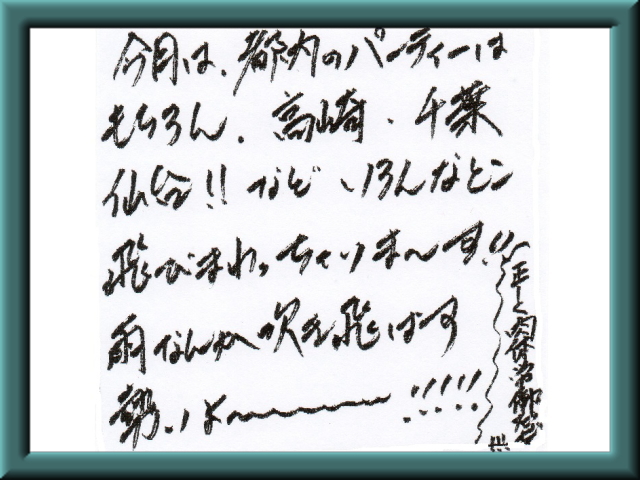 今月は、都内のパーティーは
もちろん、高崎、千葉
仙台!!など いろんなとこ
飛びまわっちゃいま〜す!!
雨なんか吹き飛ばす
勢いよ〜〜〜!!!!!